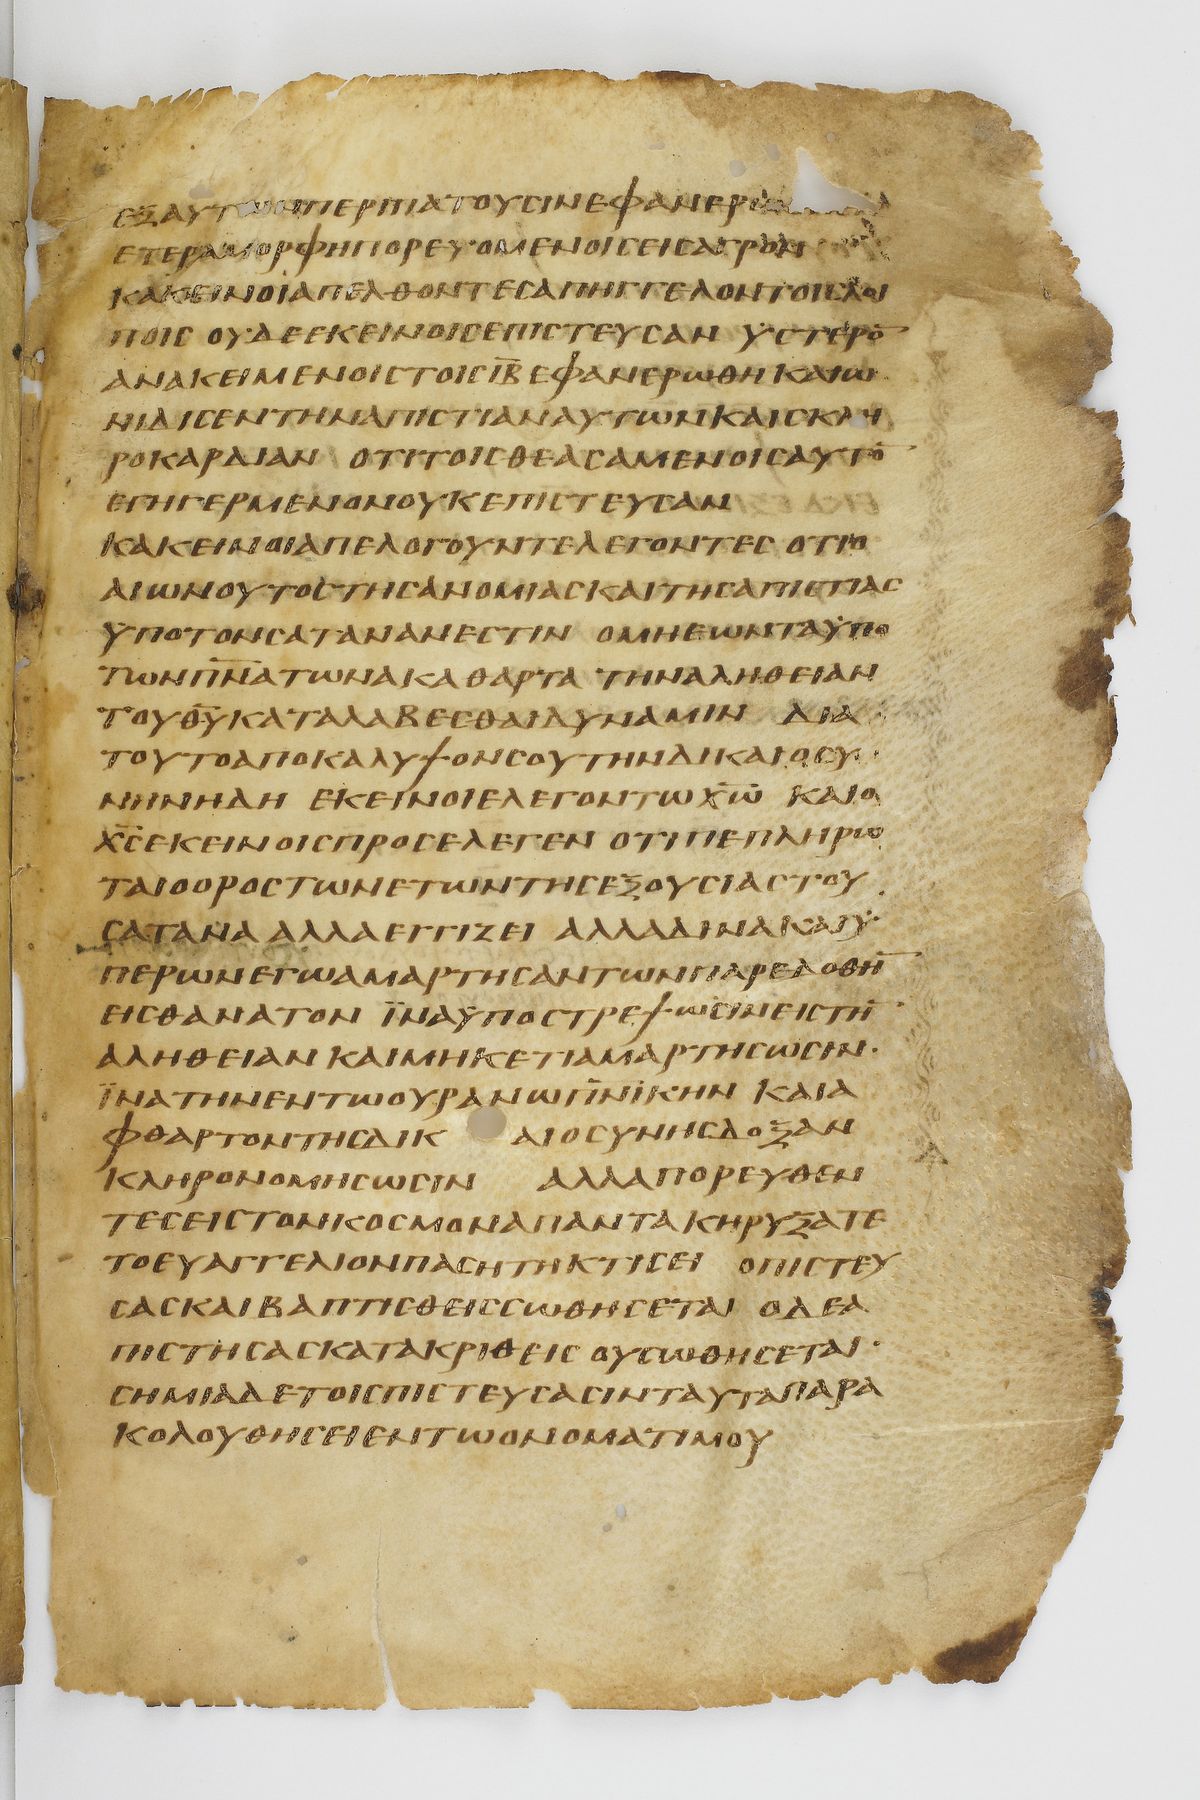 ΕΞΑΥΤΩΝΠΕΡΙΠΑΤΟΥCΙΝΕΦΑΝΕΡ
ΕΤΕΡΑΜΟΡΦΗΠΟΡΕΥΟΜΕΝΟΙCΕΙCΑΓΡΟΝ
ΚΑΚΕΙΝΟΙΑΠΕΛΘΟΝΤΕCΑΠΗΓΓΕΛΟΝΤΟΙCΛΟΙ
ΠΟΙC ΟΥΔΕΕΚΕΙΝΟΙCΕΠΙCΤΕΥCΑΝ ΥCΤΕΡΟ̅
ΑΝΑΚΕΙΜΕΝΟΙCΤΟΙCΙ̅Β̅ΕΦΑΝΕΡΩΘΗΚΑΙΩ
ΝΙΔΙCΕΝΤΗΝΑΠΙCΤΙΑΝΑΥΤΩΝΚΑΙCΚΛΗ
ΡΟΚΑΡΔΙΑΝ ΟΤΙΤΟΙCΘΕΑCΑΜΕΝΟΙCΑΥΤΟ̅
ΕΓΗΓΕΡΜΕΝΟΝΟΥΚΕΠΙCΤΕΥCΑΝ
ΚΑΚΕΙΝΟΙΑΠΕΛΟΓΟΥΝΤΕΛΕΓΟΝΤΕC ΟΤΙΟ
ΑΙΩΝΟΥΤΟCΤΗCΑΝΟΜΙΑCΚΑΙΤΗCΑΠΙCΤΙΑC
ΫΠΟΤΟΝCΑΤΑΝΑΝΕCΤΙΝ ΟΜΗΕΩΝΤΑΫΠΟ
ΤΩΝΠ̅Ν̅Α̅ΤΩΝΑΚΑΘΑΡΤΑ ΤΗΝΑΛΗΘΕΙΑΝ
ΤΟΥΘ̅Υ̅ΚΑΤΑΛΑΒΕCΘΑΙΔΥΝΑΜΙΝ ΔΙΑ
ΤΟΥΤΟΑΠΟΚΑΛΥΨΟΝCΟΥΤΗΝΔΙΚΑΙΟCΥ
ΝΗΝΗΔΗ ΕΚΕΙΝΟΙΕΛΕΓΟΝΤΩΧ̅Ω̅ ΚΑΙΟ
Χ̅C̅ΕΚΕΙΝΟΙCΠΡΟCΕΛΕΓΕΝ ΟΤΙΠΕΠΛΗΡΩ
ΤΑΙΟΟΡΟCΤΩΝΕΤΩΝΤΗCΕΞΟΥCΙΑCΤΟΥ
CΑΤΑΝΑ ΑΛΛΑΕΓΓΙΖΕΙ ΑΛΛΑΔΙΝΑΚΑΙΫ
ΠΕΡΩΝΕΓΩΑΜΑΡΤΗCΑΝΤΩΝΠΑΡΕΔΟΘΗ̅
ΕΙCΘΑΝΑΤΟΝ ΪΝΑΫΠΟCΤΡΕΨΩCΙΝΕΙCΤΗ̅
ΑΛΗΘΕΙΑΝ ΚΑΙΜΗΚΕΤΙΑΜΑΡΤΗCΩCΙΝ·
ΪΝΑΤΗΝΕΝΤΩΟΥΡΑΝΩΠ̅Ν̅Ι̅ΚΗΝ ΚΑΙΑ
ΦΘΑΡΤΟΝΤΗCΔΙΚ ΑΙΟCΥΝΗCΔΟΞΑΝ
ΚΛΗΡΟΝΟΜΗCΩCΙΝ ΑΛΛΑΠΟΡΕΥΘΕΝ
ΤΕCΕΙCΤΟΝΚΟCΜΟΝΑΠΑΝΤΑ ΚΗΡΥΞΑΤΕ
ΤΟΕΥΑΓΓΕΛΙΟΝΠΑCΗΤΗΚΤΙCΕΙ ΟΠΙCΤΕΥ
CΑCΚΑΙΒΑΠΤΙCΘΕΙCCΩΘΗCΕΤΑΙ ΟΔΕΑ
ΠΙCΤΗCΑCΚΑΤΑΚΡΙΘΕΙC ΟΥCΩΘΗCΕΤΑΙ·
CΗΜΙΑΔΕΤΟΙCΠΙCΤΕΥCΑCΙΝΤΑΥΤΑΠΑΡΑ
ΚΟΛΟΥΘΗCΕΙΕΝΤΩΟΝΟΜΑΤΙΜΟΥ